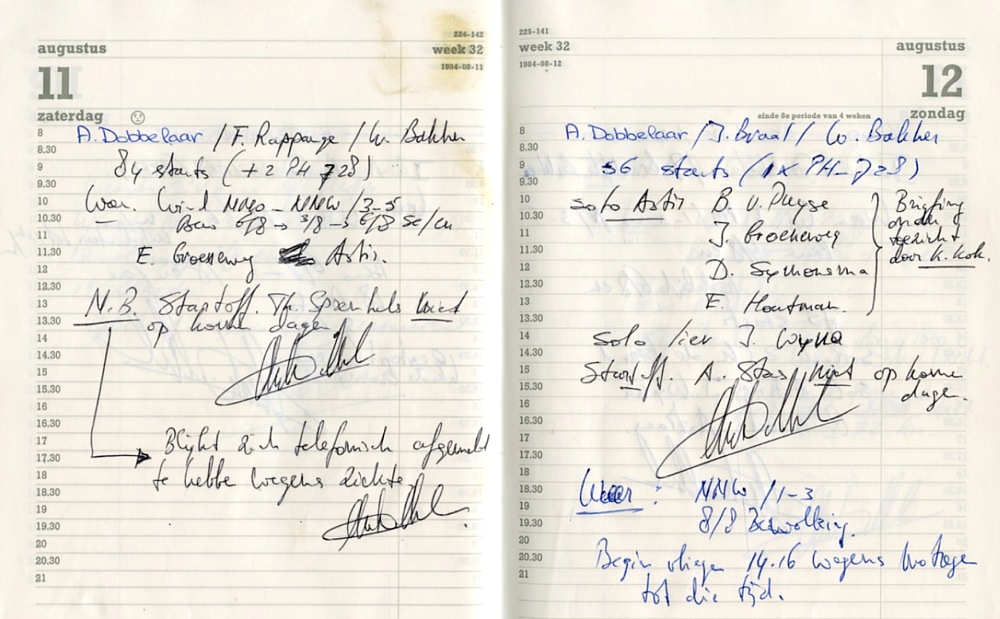 224-142
augustus
week 32
1984-08-11
11
zaterdag
8 A. Dobbelaar / F. Rappange / W. Bakker
8.30
9 84 starts (+ 2 PH 728)
9.30
10 Weer. Wind NNO - NNW / 3-5
10.30 6/8 → 3/8 → 6/8 sc/cu
11
11.30 E. Groeneweg Astir.
12
12.30
13 N.B. Startoff. Th. niet
13.30 op komen dagen
14
14.30
15
15.30
16
16.30
17 Blijkt zich telefonisch afgemeld
17.30
18 te hebbe wegens ziekte
18.30
19
19.30
20
20.30
21
225-141
week 32
augustus
1984-08-12
12
einde 8e periode van 4 weken
zondag
8 A. Dobbelaar / J. Braal / W. Bakker
8.30
9 56 starts (1x PH-728)
9.30
10 solo Astir B. v. Puype Briefing
10.30 onder
11 J. Groeneweg toezicht
11.30 door K. Kok.
12 D. Symonsma
12.30
13 E. Houtman.
13.30
14 solo lier J. Wyna
14.30
15 Startoff. A. Stas niet op komen
15.30 dage.
16
16.30
17
17.30
18
18.30 Weer: NNW / 1-3
19
19.30 8/8 Bewolking.
20
20.30 Begin vliegen 14.16 wegens
21 tot die tijd.